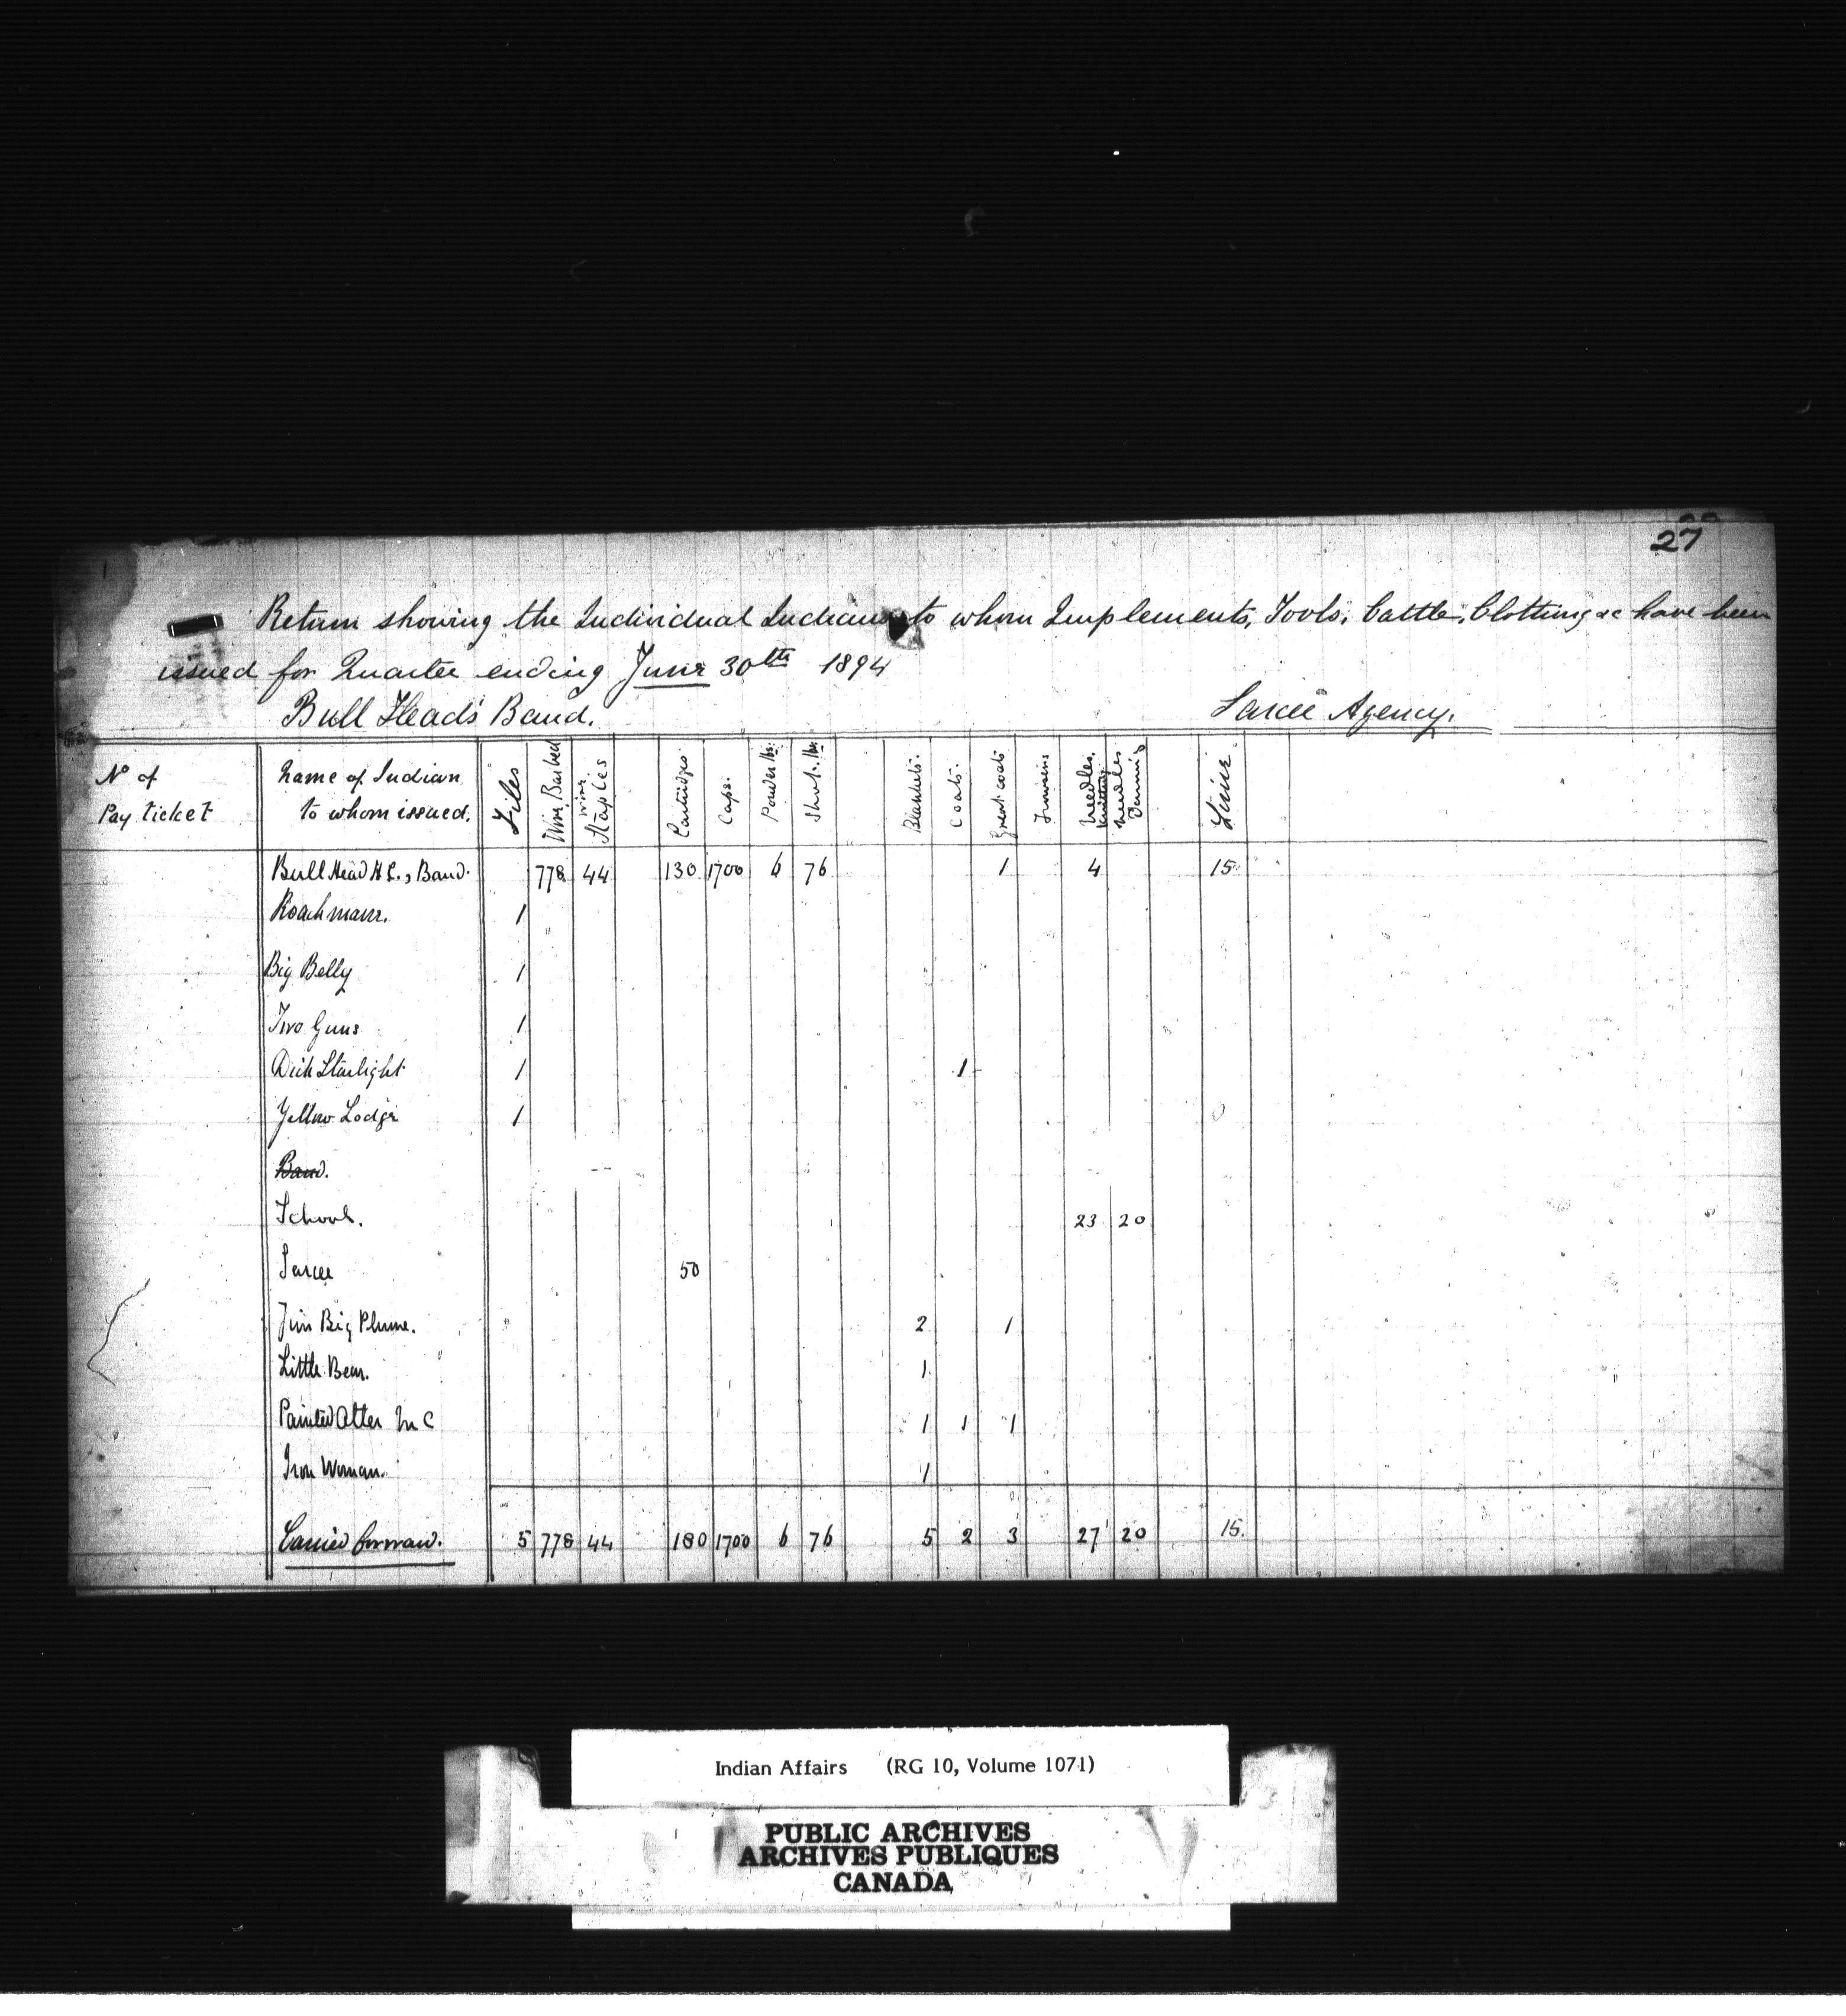 27
Return showing the Individual Indians to whom Implements, Tools, Cattle, Clothing &c have been
issued for Quarter ending June 30th 1894
Bull Head's Band. Sarcee Agency.
No of Pay ticket | Name of Indian to whom issued. | Files | Wire Barbed | wire Staples | Cartridges | Caps. | Powder lbs. | Shot. lbs | Blankets. | Coats. | Great coats | needles knitting | needles | Lime
Bull Head H C., Band. 778 44 130 1700 6 76 1 4 15
Roachmane. 1
Big Belly 1
Two Guns 1
Dick Starlight 1 1
Yellow Lodge 1
Band.
School. 23 20
Sarcee 50
Jim Big Plume. 2 1
Little Bear. 1
Painted Otter M C 1 1 1
Iron Woman. 1
Carried forward. 5 778 44 180 1700 6 76 5 2 3 27 20 15.
Indian Affairs (RG 10, Volume 1071)
PUBLIC ARCHIVES
ARCHIVES PUBLIQUES
CANADA